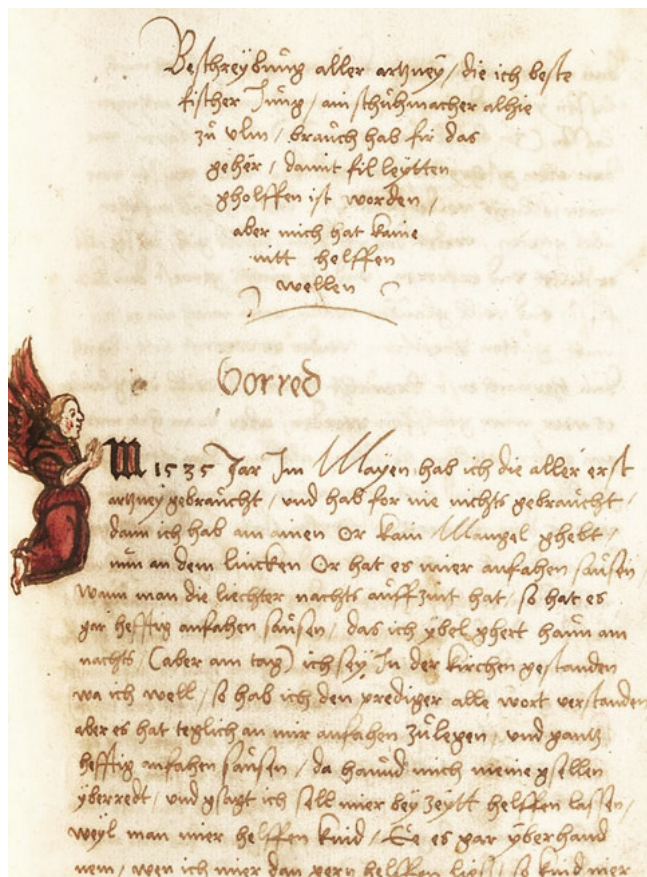 Beschreybung aller artzney / die ich beste
fischer Jung / ain schuhmacher alhie
zů vlm / brauch hab fir das
geher / damit fil leytten
gholffen ist worden /
aber mich hat kaine
nitt helffen
wellen
Vorred
M 1535 Jar Im Mayen hab ich die aller erst
artzney gebraucht / und hab for nie nichts gebraucht /
dann ich hab an ainen Or kain Mangel ghebt /
nun an dem lincken Or hat es mier anfahen sausen /
wann man die liechter nachts auff zint hat / so hat es
gar hefftig anfahen sausen / das ich ybel ghert haun am
nachts / (aber am tag) ich sey In der kirchen gestanden
wa ich well / so hab ich den prediger alle wort verstanden
aber es hat teglich an mir anfahen zůlegen / und gantz
hefftig anfahen sausen / da haund mich meine gsellen
yberredt / und gsagt ich sell mier bey zeytt helffen lassen /
weyl man mier helffen kind / Ee es gar yberhand
nem / wen ich mier dan gern helffen ließ / so kind mier